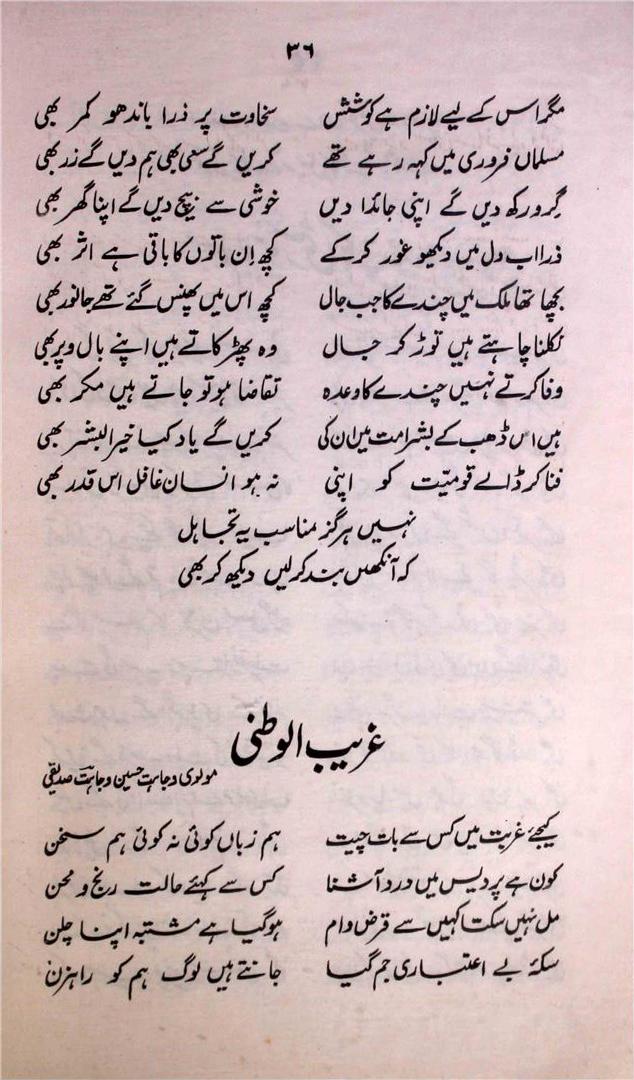 ۳۶
مگر اس کے لیے لازم ہے کوشش سخاوت پر ذرا باندھو کمر بھی
مسلماں فروری میں کہہ رہے تھے کریں گے سعی بھی ہم دیں گے زر بھی
گرو رکھ دیں گے اپنی جائدا دیں خوشی سے بیچ دیں گے اپنا گھر بھی
ذرا اب دل میں دیکھو غور کر کے کچھ اِن باتوں کا باقی ہے اثر بھی
بچھا تھا ملک میں چندے کا جب جال کچھ اس میں پھنس گئے تھے جانور بھی
نکلنا چاہتے ہیں توڑ کر جال وہ پھڑکاتے ہیں اپنے بال و پر بھی
وفا کرتے نہیں چندے کا وعدہ تقاضا ہو تو جاتے ہیں مکر بھی
ہیں اس ڈھب کے بشر امت میں ان کی کریں گے یاد کیا خیر البشر بھی
فنا کر ڈالے قومیّت کو اپنی نہ ہو انسان غافل اس قدر بھی
نہیں ہرگز مناسب یہ تجاہل
کہ آنکھیں بند کر لیں دیکھ کر بھی
غریب الوطنی
مولوی وجاہت حسین وجاہت صدیقی
کیجے غربت میں کس سے بات چیت ہم زباں کوئی نہ کوئی ہم سخن
کون ہے پردیس میں درد آشنا کس سے کہئے حالت رنج و محن
مل نہیں سکتا کہیں سے قرض وام ہو گیا ہے مشتبہ اپنا چلن
سکۂ بے اعتباری جم گیا جانتے ہیں لوگ ہم کو راہزن